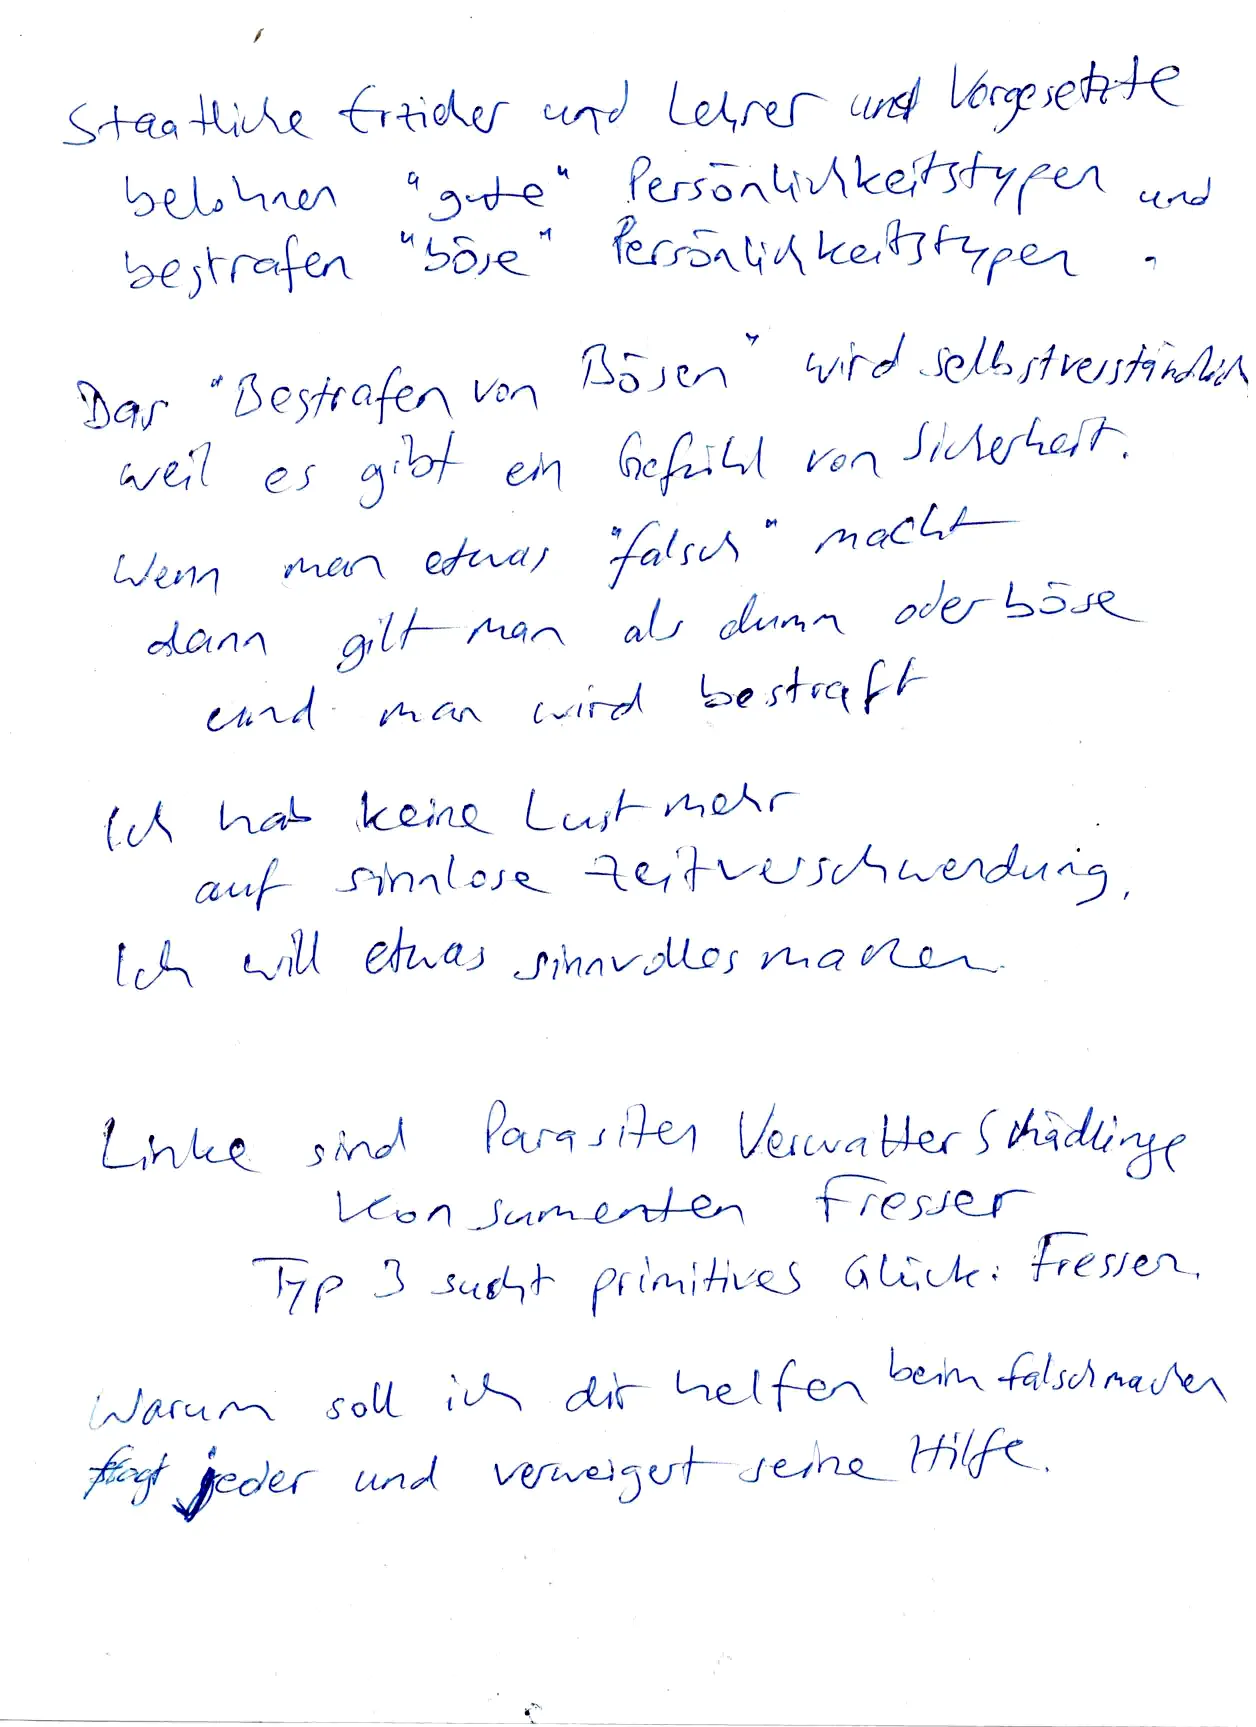 Staatliche Erzieher und Lehrer und Vorgesetzte
belohnen "gute" Persönlichkeitstypen und
bestrafen "böse" Persönlichkeitstypen.
Das "Bestrafen von Bösen" wird selbstverständlich
weil es gibt ein Gefühl von Sicherheit.
Wenn man etwas "falsch" macht
dann gilt man als dumm oder böse
und man wird bestraft
Ich hab keine Lust mehr
auf sinnlose Zeitverschwendung,
Ich will etwas sinnvolles machen.
Linke sind Parasiten Verwalter Schädlinge
Konsumenten Fresser
Typ 3 sucht primitives Glück: Fressen.
Warum soll ich dir helfen beim falschmachen
fragt jeder und verweigert seine Hilfe.